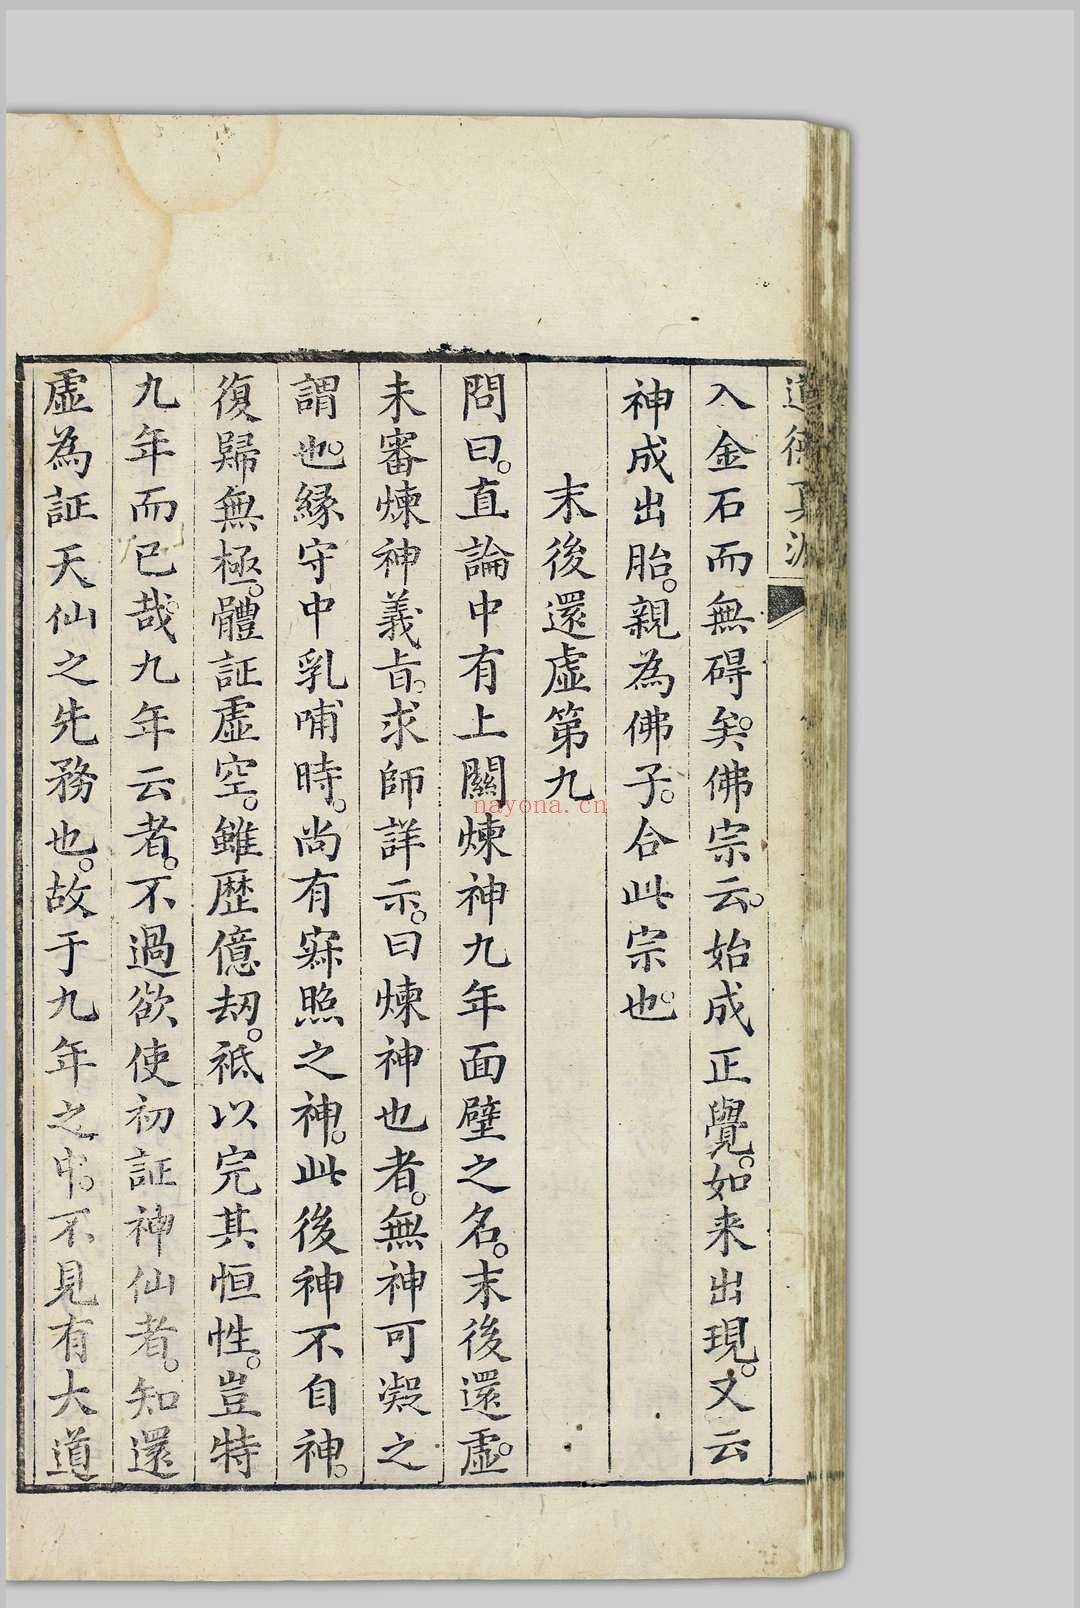 道德真源
入金石而無碍矣。佛宗云。始成正覺。如来出現。又云
神成出胎。親為佛子。合此宗也。
末後還虛第九
問曰。直論中有上關煉神九年面壁之名。末後還虛。
未審煉神義旨。求師詳示。曰煉神也者。無神可凝之
謂也。緣守中乳哺時。尚有寂照之神。此後神不自神。
復歸無極。體証虛空。雖歷億刼。祇以完其恒性。豈特
九年而已哉。九年云者。不過欲使初証神仙者。知還
虛為証天仙之先務也。故于九年之中。不見有大道
nayona.cn